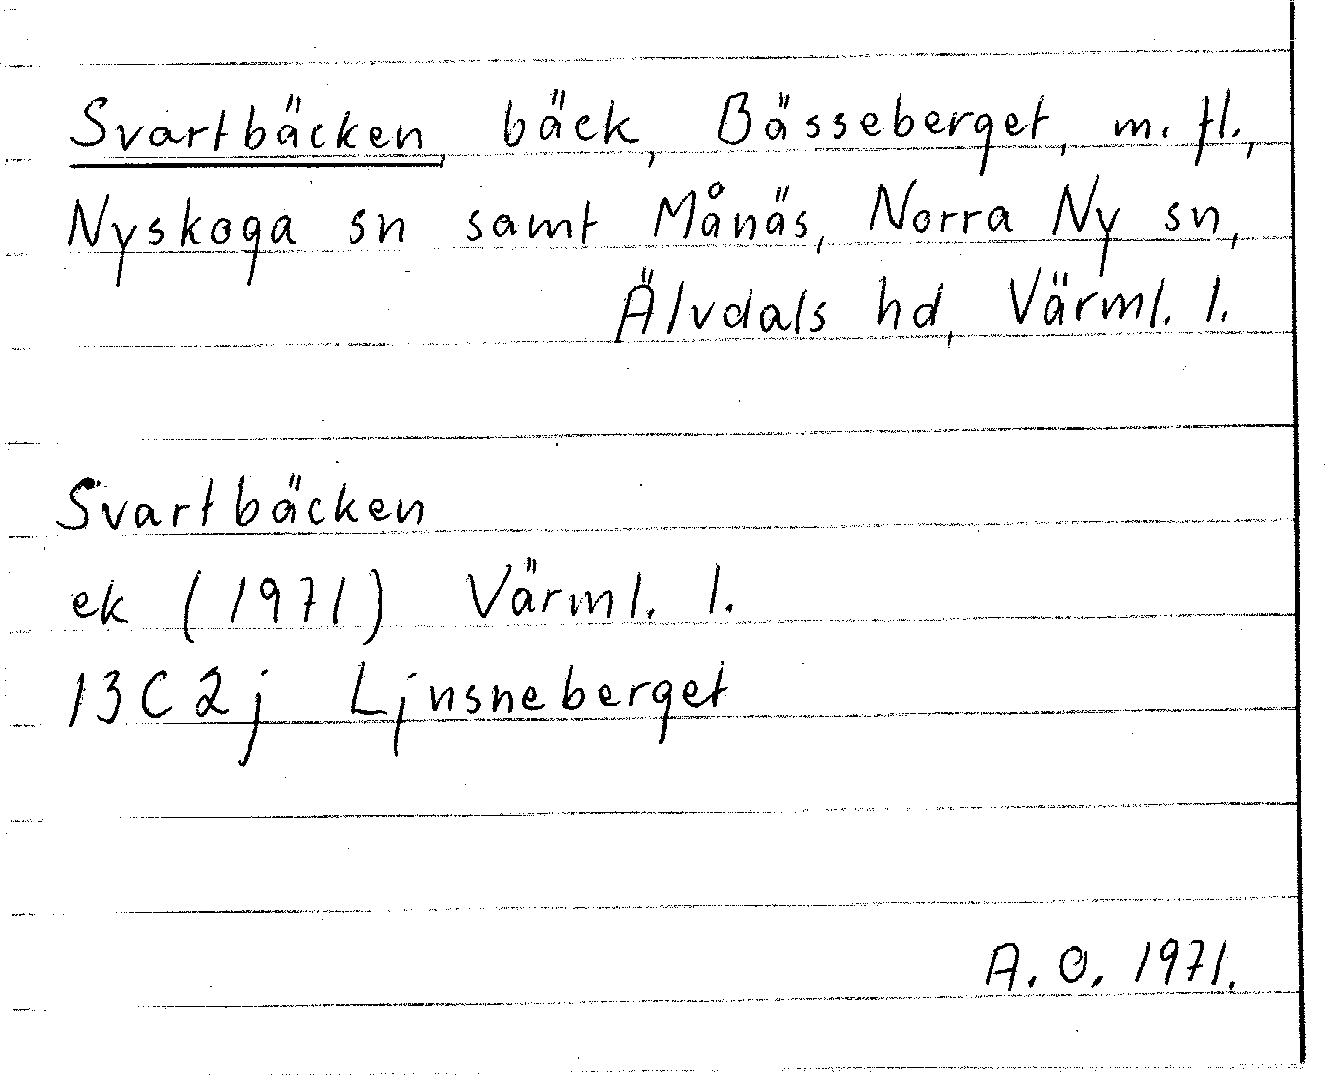 Svartbäcken, bäck, Bässeberget, m. fl.,
Nyskoga sn samt Månäs, Norra Ny sn,
Älvdals hd, Värml. l.
Svartbäcken
ek (1971) Värml. l.
13C2j Ljnsneberget
A. O. 1971.